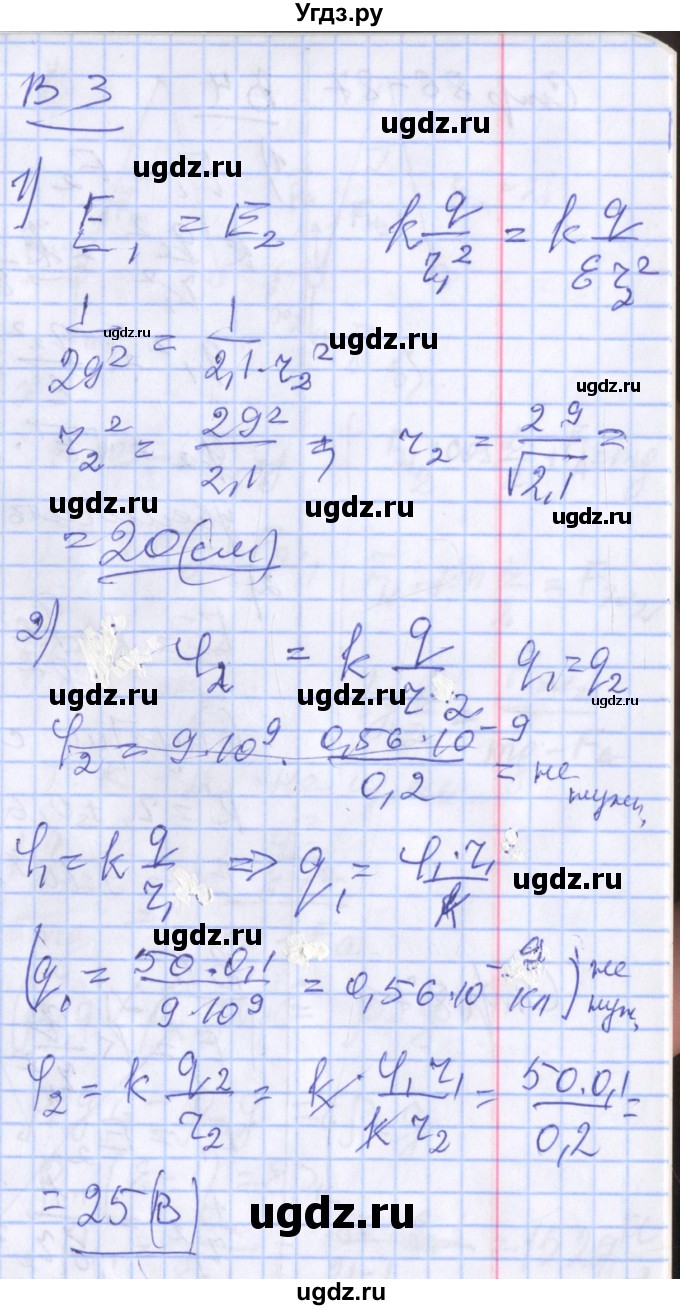 Угдз.ру
В 3
ugdz.ru
ugdz.ru
1) E₁ = E₂ k q/r₁² = k q/(ε r₂²)
ugdz.ru
1/29² = 1/(2,1·r₂²)
ugdz.ru
ugdz.ru
r₂² = 29²/2,1 ⇒ r₂ = 29/√2,1 =
ugdz.ru
ugdz.ru
ugdz.ru
= 20 (см)
2) φ₂ = k q/r₂ q₁ = q₂
ugdz.ru
ugdz.ru
ugdz.ru
φ₂ = 9·10⁹ · 0,56·10⁻⁹/0,2 = не нужн,
φ₁ = k q/r₁ ⇒ q₁ = φ₁·r₁/k
ugdz.ru
ugdz.ru
(q₁ = 50·0,1/(9·10⁹) = 0,56·10⁻⁹ Кл) не нуж,
φ₂ = k q₂/r₂ = k·φ₁ r₁/(k r₂) = 50·0,1/0,2 =
= 25 (В)
ugdz.ru
ugdz.ru